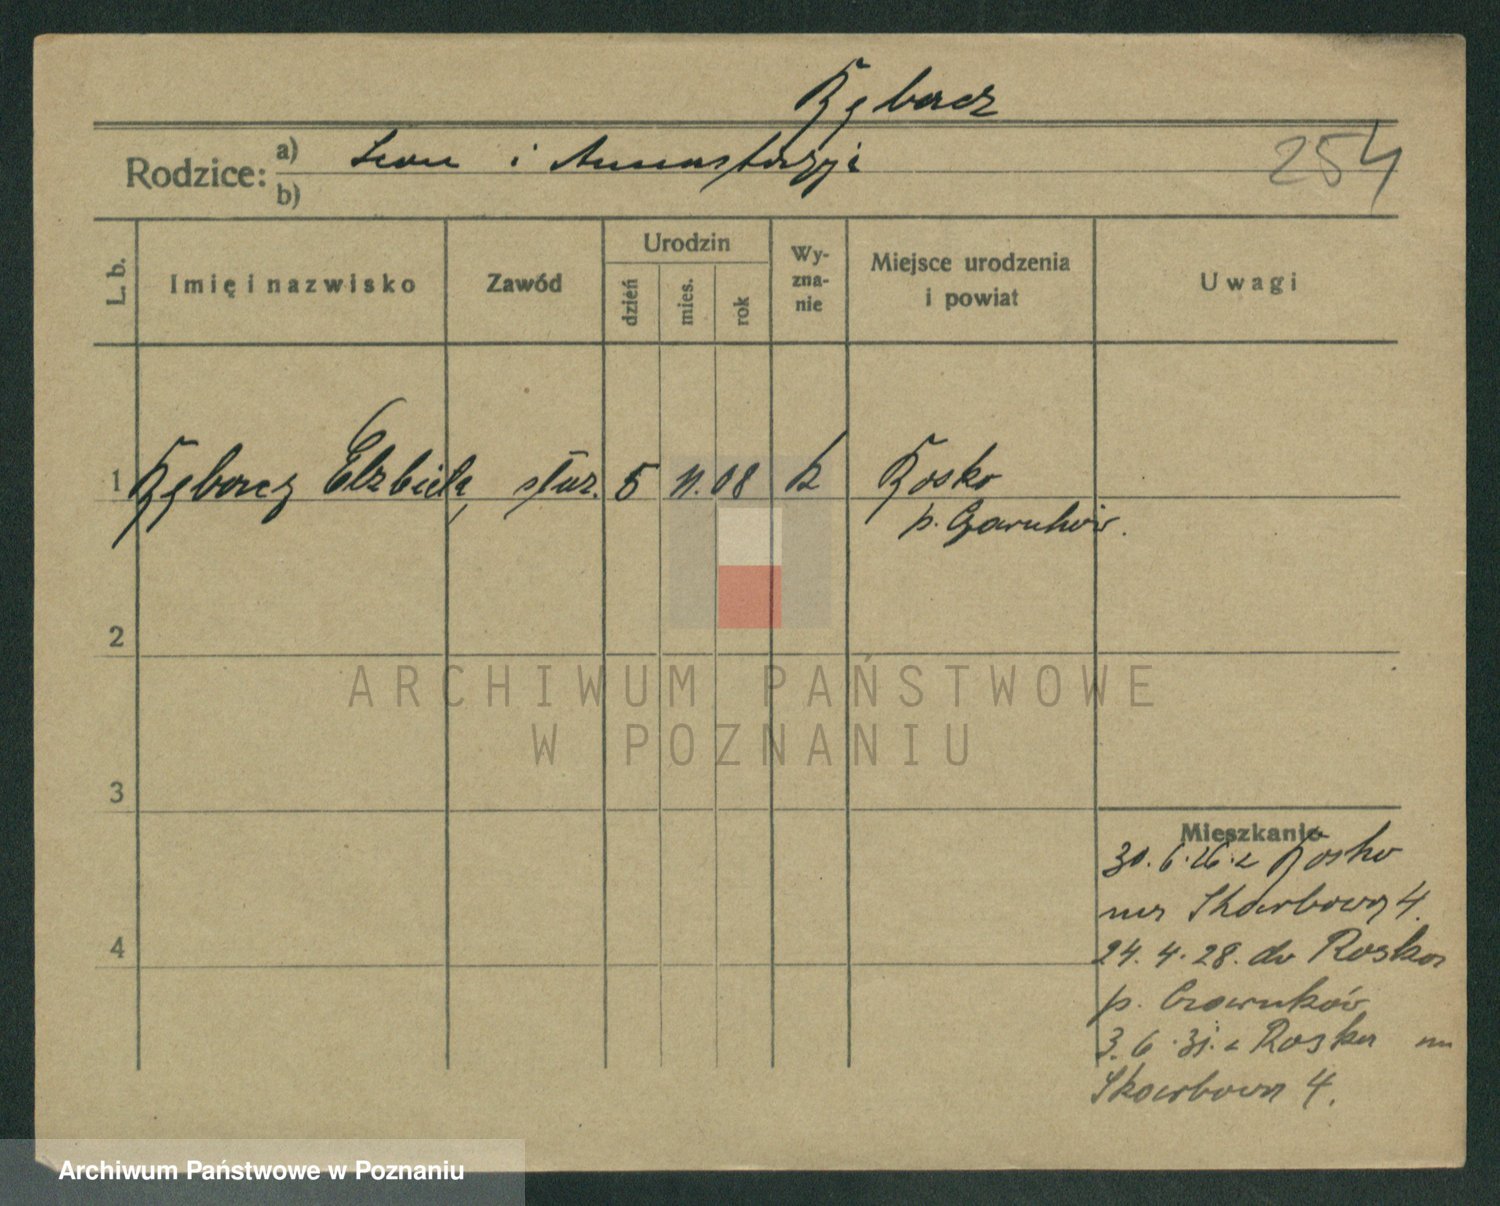 Rębacz
254
Rodzice: a) Leon i Annastazyi
b)
L. b. Imię i nazwisko Zawód Urodzin dzień mies. rok Wyznanie Miejsce urodzenia i powiat Uwagi
1 Rębacz Elzbieta służ. 5 11. 08 k Rosko
p. Czarnków.
2
ARCHIWUM PAŃSTWOWE
W POZNANIU
3
Mieszkanie
30. 6. 26. z Rosko
na Skarbowa 4.
4
24. 4. 28. do Roska
p. Czarnków
3. 6. 31. z Roska na
Skarbowa 4.
Archiwum Państwowe w Poznaniu